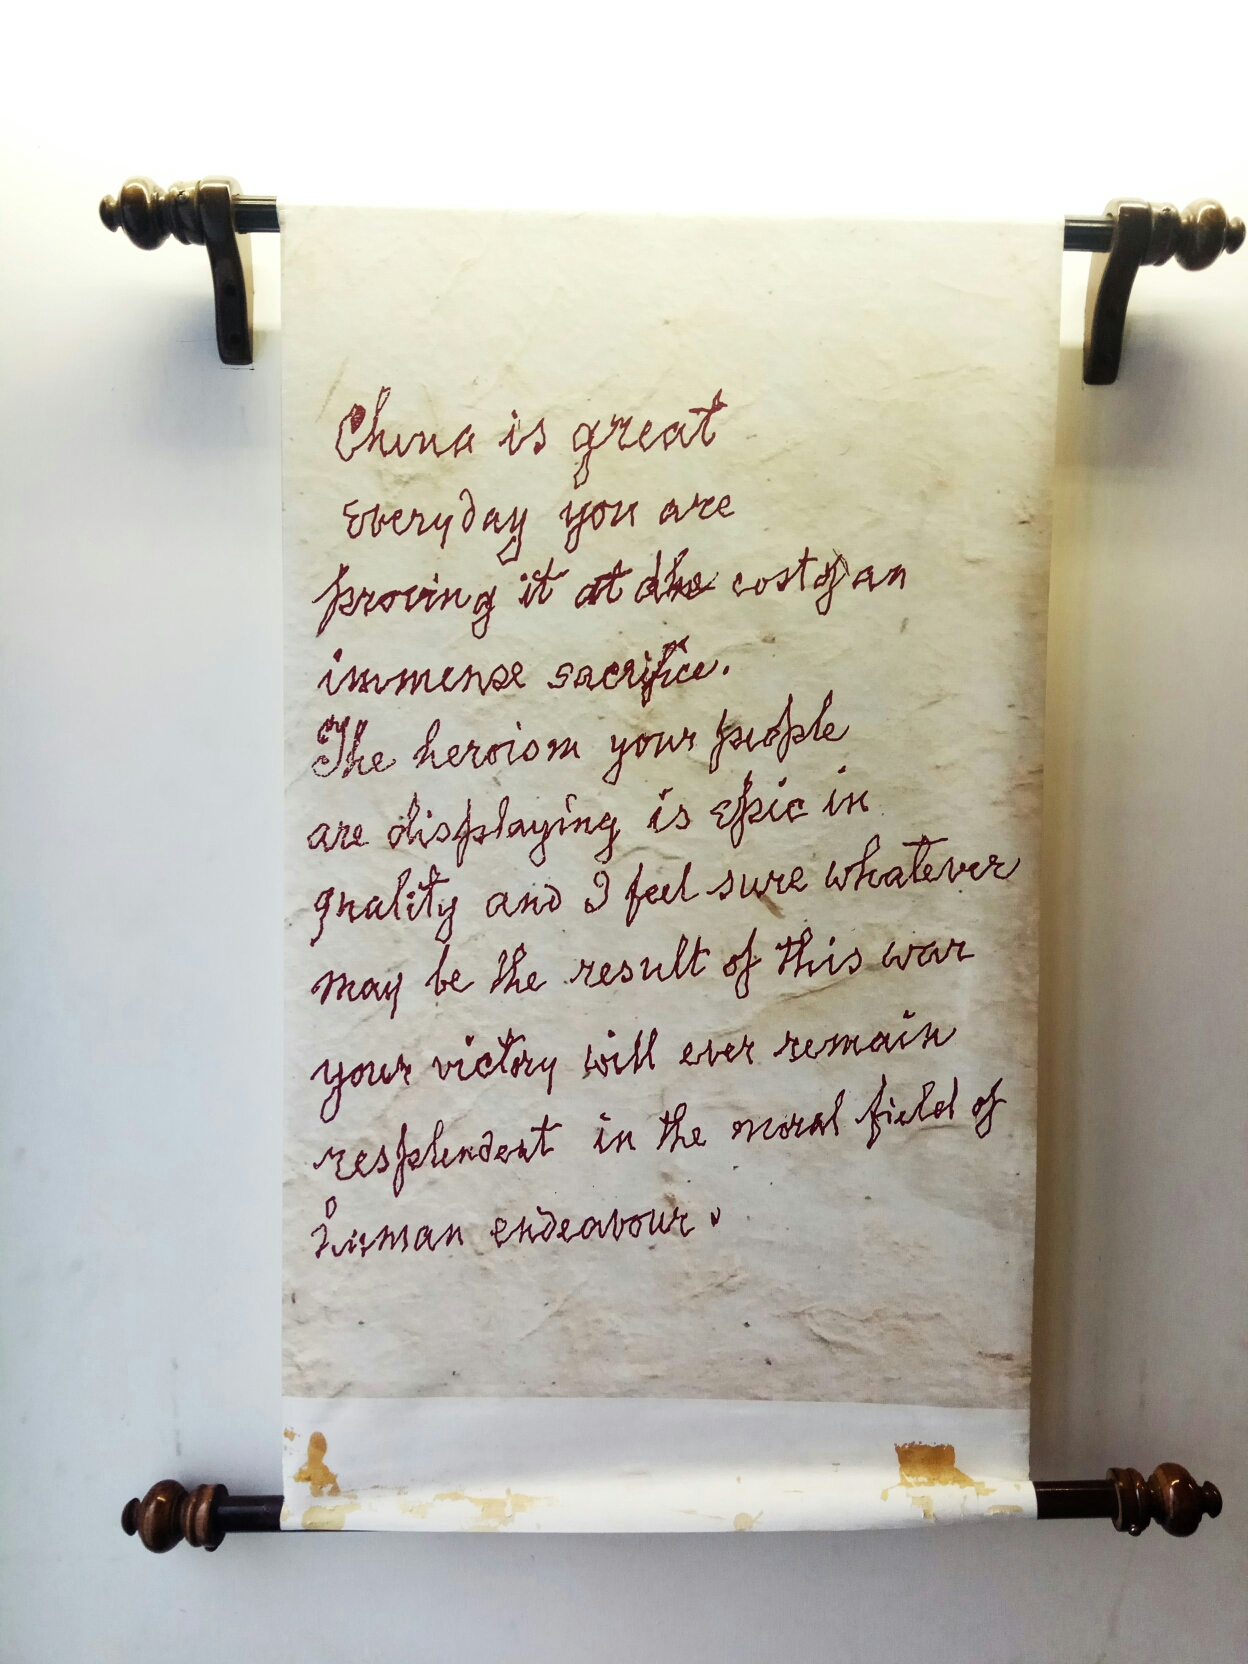 China is great
Everyday you are
proving it at the cost of an
immense sacrifice.
The heroism your people
are displaying is epic in
quality and I feel sure whatever
may be the result of this war
your victory will ever remain
resplendent in the moral field of
human endeavour.